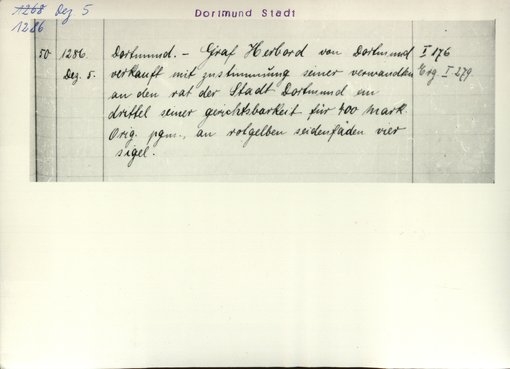 1268 Dez 5
1286
Dortmund Stadt
50 1286. Dortmund. - Graf Herbord von Dortmund I 176
Dez. 5. verkauft mit zustimmung seiner verwandten Erg I 279
an den rat der Stadt Dortmund ein
drittel seiner gerichtsbarkeit für 400 Mark
Orig. pgm., an rotgelben seidenfäden vier
sigel.